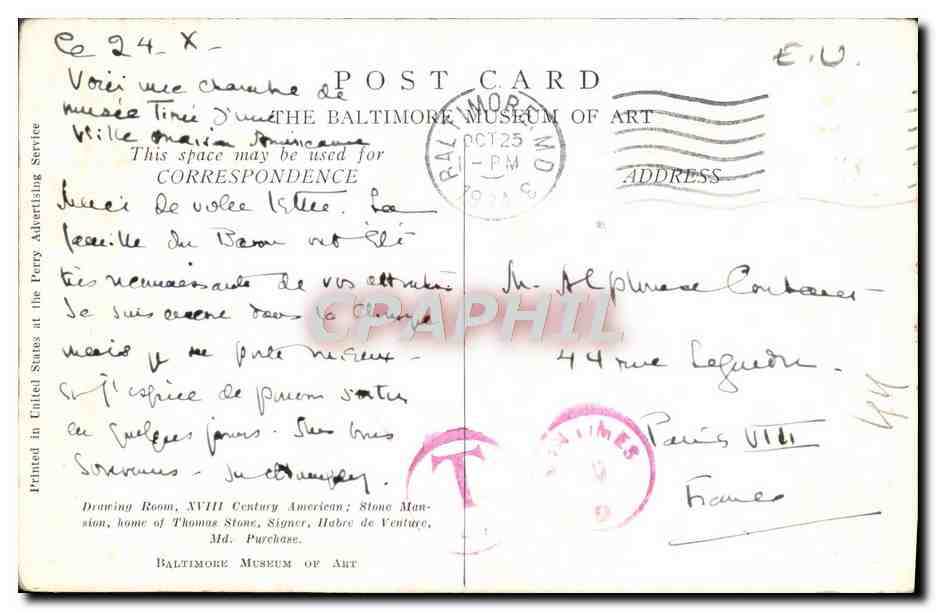 Ce 24. X -
E. U.
Voici une chambre de
musée Tirée d'une
Vieille maison Américaine
POST CARD
THE BALTIMORE MUSEUM OF ART
This space may be used for
CORRESPONDENCE
ADDRESS
BALTIMORE, MD
OCT 25
1 - PM
Merci de votre lettre. La
famille du Baron ont été
très reconnaissants de vos
Je suis encore dans la
mais je me porte mieux -
et j'espère de pouvoir sortir
en quelques jours.
Souvenirs -
M. Alphonse
44 rue
Paris VIII
France
44
T
CENTIMES
CPAPHIL
Drawing Room, XVIII Century American; Stone Man-
sion, home of Thomas Stone, Signer, Habre de Venture,
Md. Purchase.
BALTIMORE MUSEUM OF ART
Printed in United States at the Perry Advertising Service